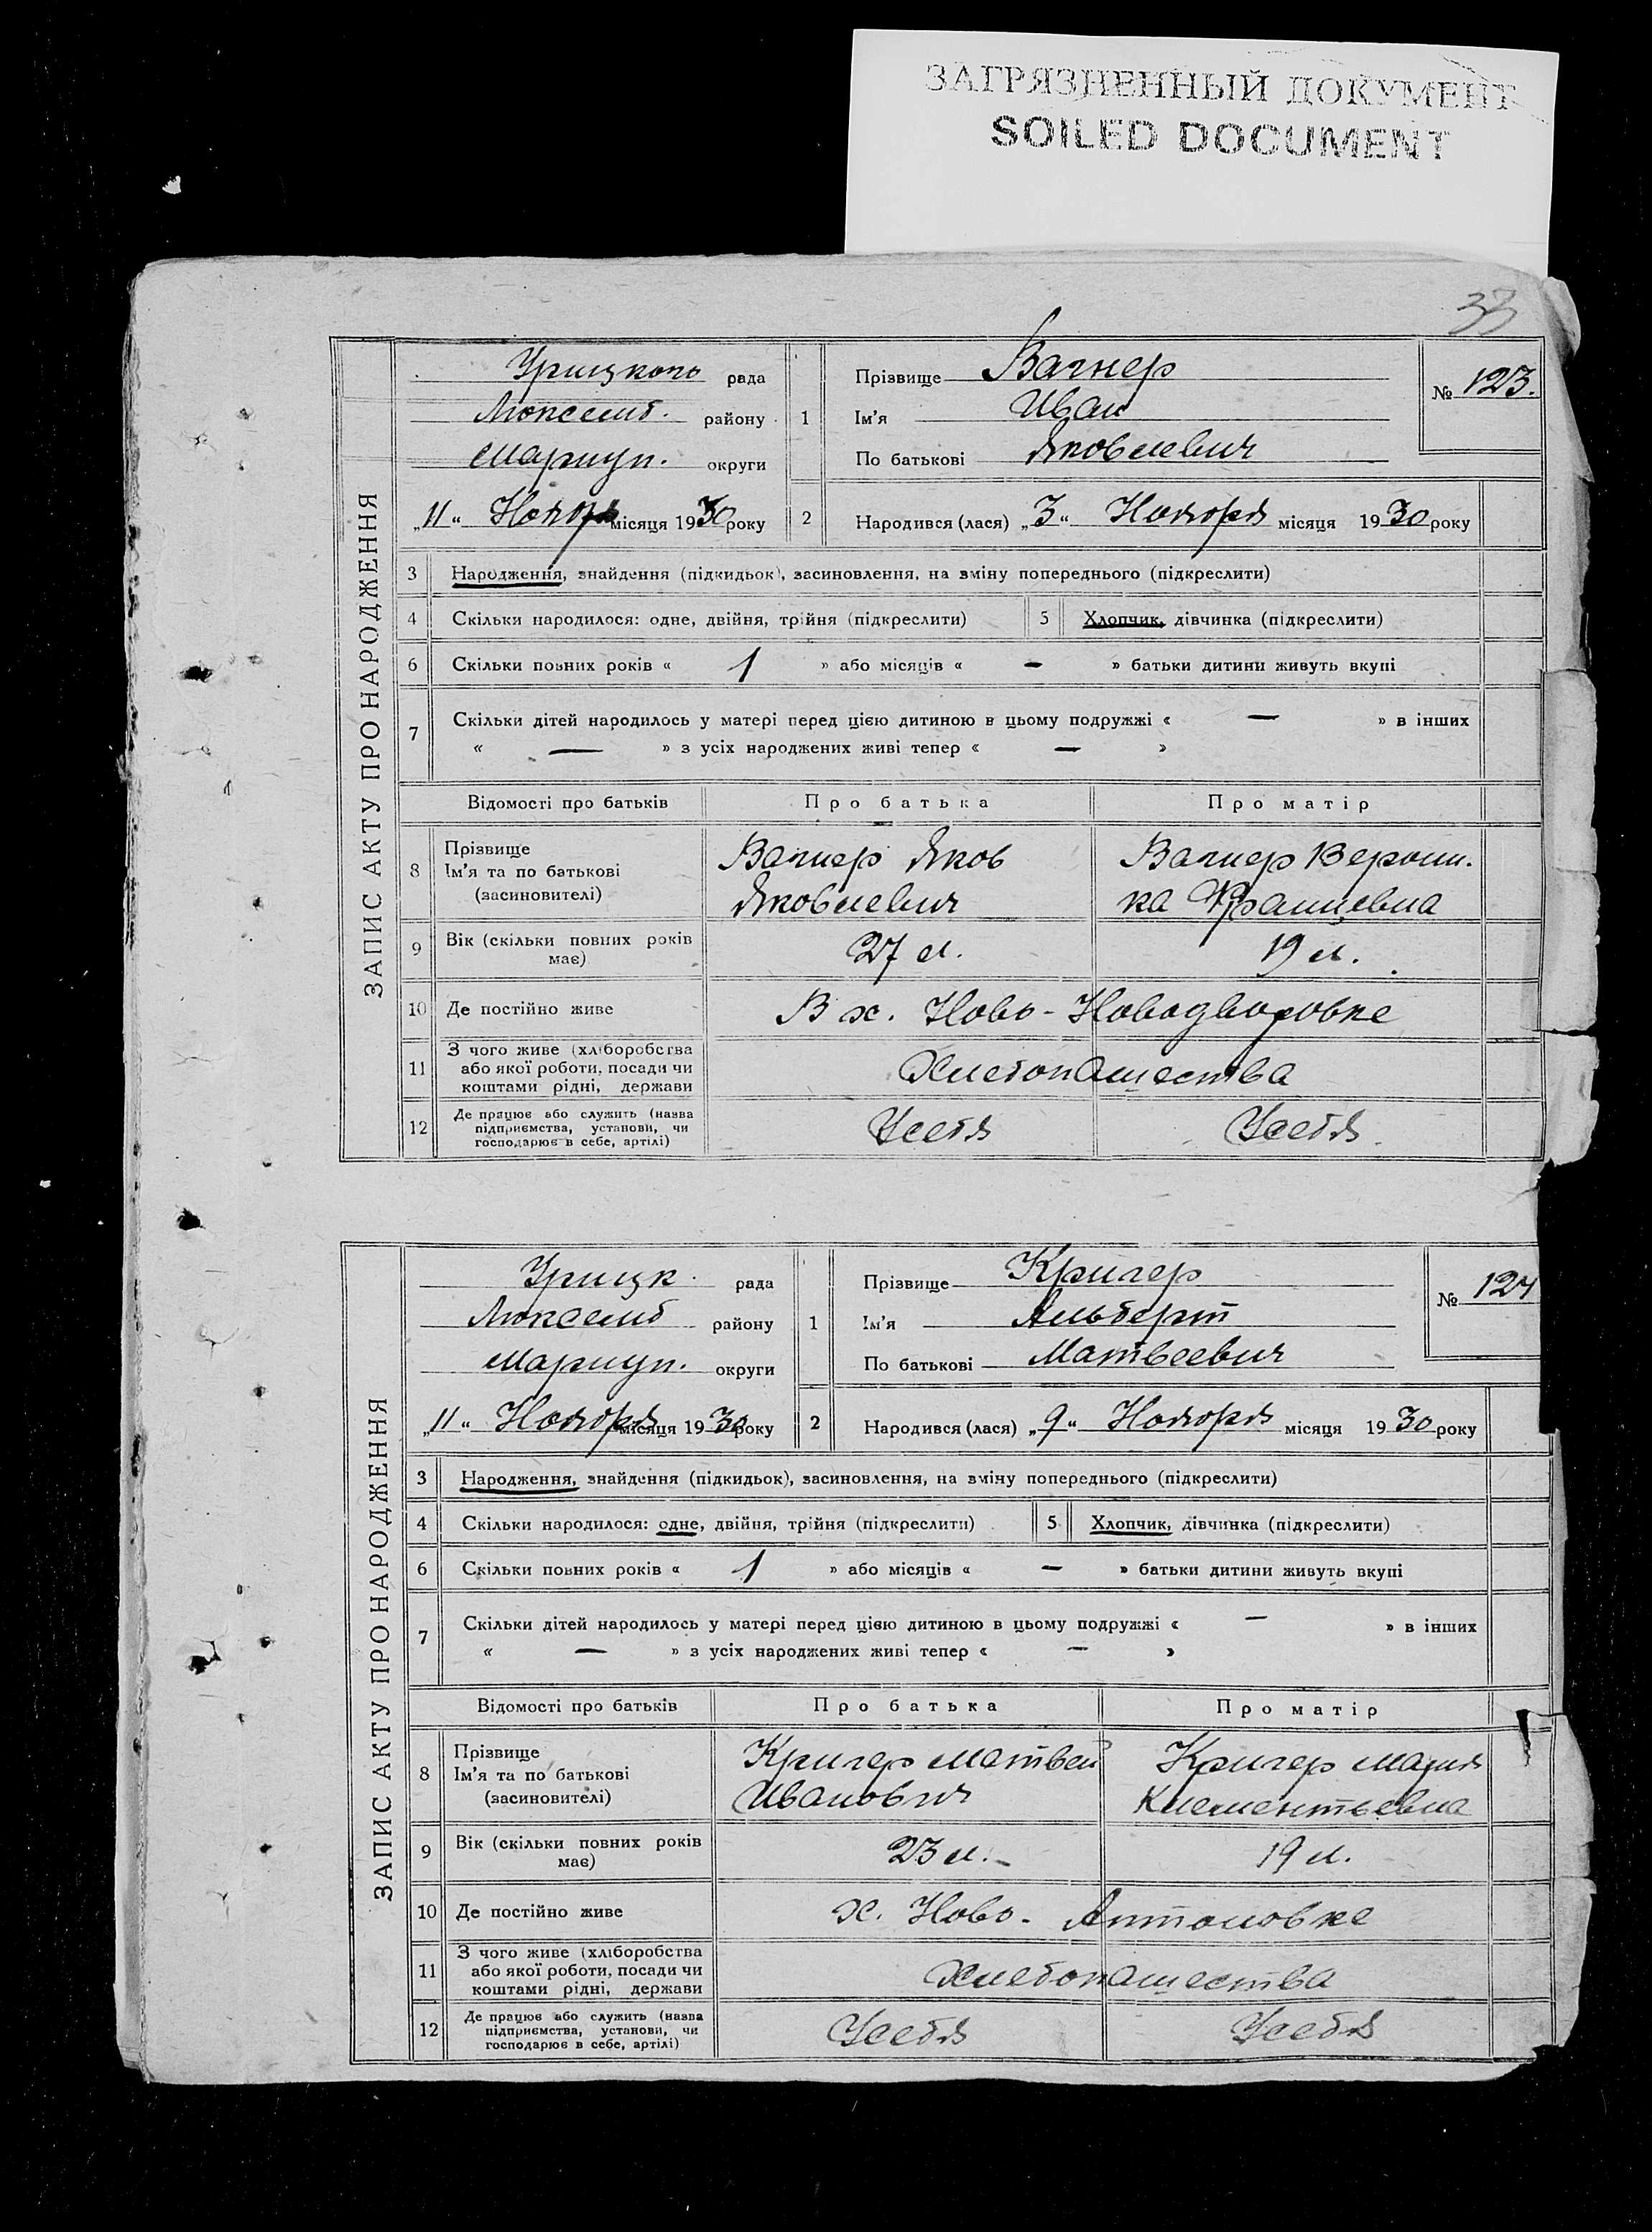 ЗАГРЯЗНЕННЫЙ ДОКУМЕНТ
SOILED DOCUMENT
33
ЗАПИС АКТУ ПРО НАРОДЖЕННЯ
Урицкого рада
Люксемб. району
Мариуп. округи
„11“ Ноября місяця 1930 року
1 Прізвище Вагнер
Ім’я Иван
По батькові Яковлевич
№ 123.
2 Народився (лася) „3“ Ноября місяця 1930 року
3 Народження, знайдення (підкидьок), засиновлення, на зміну попереднього (підкреслити)
4 Скільки народилося: одне, двійня, трійня (підкреслити) 5 Хлопчик, дівчинка (підкреслити)
6 Скільки повних років « 1 » або місяців « — » батьки дитини живуть вкупі
7 Скільки дітей народилось у матері перед цією дитиною в цьому подружжі « — » в інших
« — » з усіх народжених живі тепер « — »
Відомості про батьків Про батька Про матір
8 Прізвище
Ім’я та по батькові
(засиновителі)
Вагнер Яков
Яковлевич
Вагнер Верони-
ка Францевна
9 Вік (скільки повних років
має)
27 л. 19 л.
10 Де постійно живе В х. Ново-Новодворовке
11 З чого живе (хліборобства
або якої роботи, посади чи
коштами рідні, держави
Хлебопашества
12 Де працює або служить (назва
підприємства, установи, чи
господарює в себе, артілі)
У себя У себя
ЗАПИС АКТУ ПРО НАРОДЖЕННЯ
Урицк. рада
Люксемб району
Мариуп. округи
„11“ Ноября місяця 1930 року
1 Прізвище Кригер
Ім’я Альберт
По батькові Матвеевич
№ 124
2 Народився (лася) „9“ Ноября місяця 1930 року
3 Народження, знайдення (підкидьок), засиновлення, на зміну попереднього (підкреслити)
4 Скільки народилося: одне, двійня, трійня (підкреслити) 5 Хлопчик, дівчинка (підкреслити)
6 Скільки повних років « 1 » або місяців « — » батьки дитини живуть вкупі
7 Скільки дітей народилось у матері перед цією дитиною в цьому подружжі « — » в інших
« — » з усіх народжених живі тепер « — »
Відомості про батьків Про батька Про матір
8 Прізвище
Ім’я та по батькові
(засиновителі)
Кригер Матвей
Иванович
Кригер Мария
Клементьевна
9 Вік (скільки повних років
має)
23 л. 19 л.
10 Де постійно живе х. Ново-Антоновке
11 З чого живе (хліборобства
або якої роботи, посади чи
коштами рідні, держави
Хлебопашества
12 Де працює або служить (назва
підприємства, установи, чи
господарює в себе, артілі)
У себя У себя